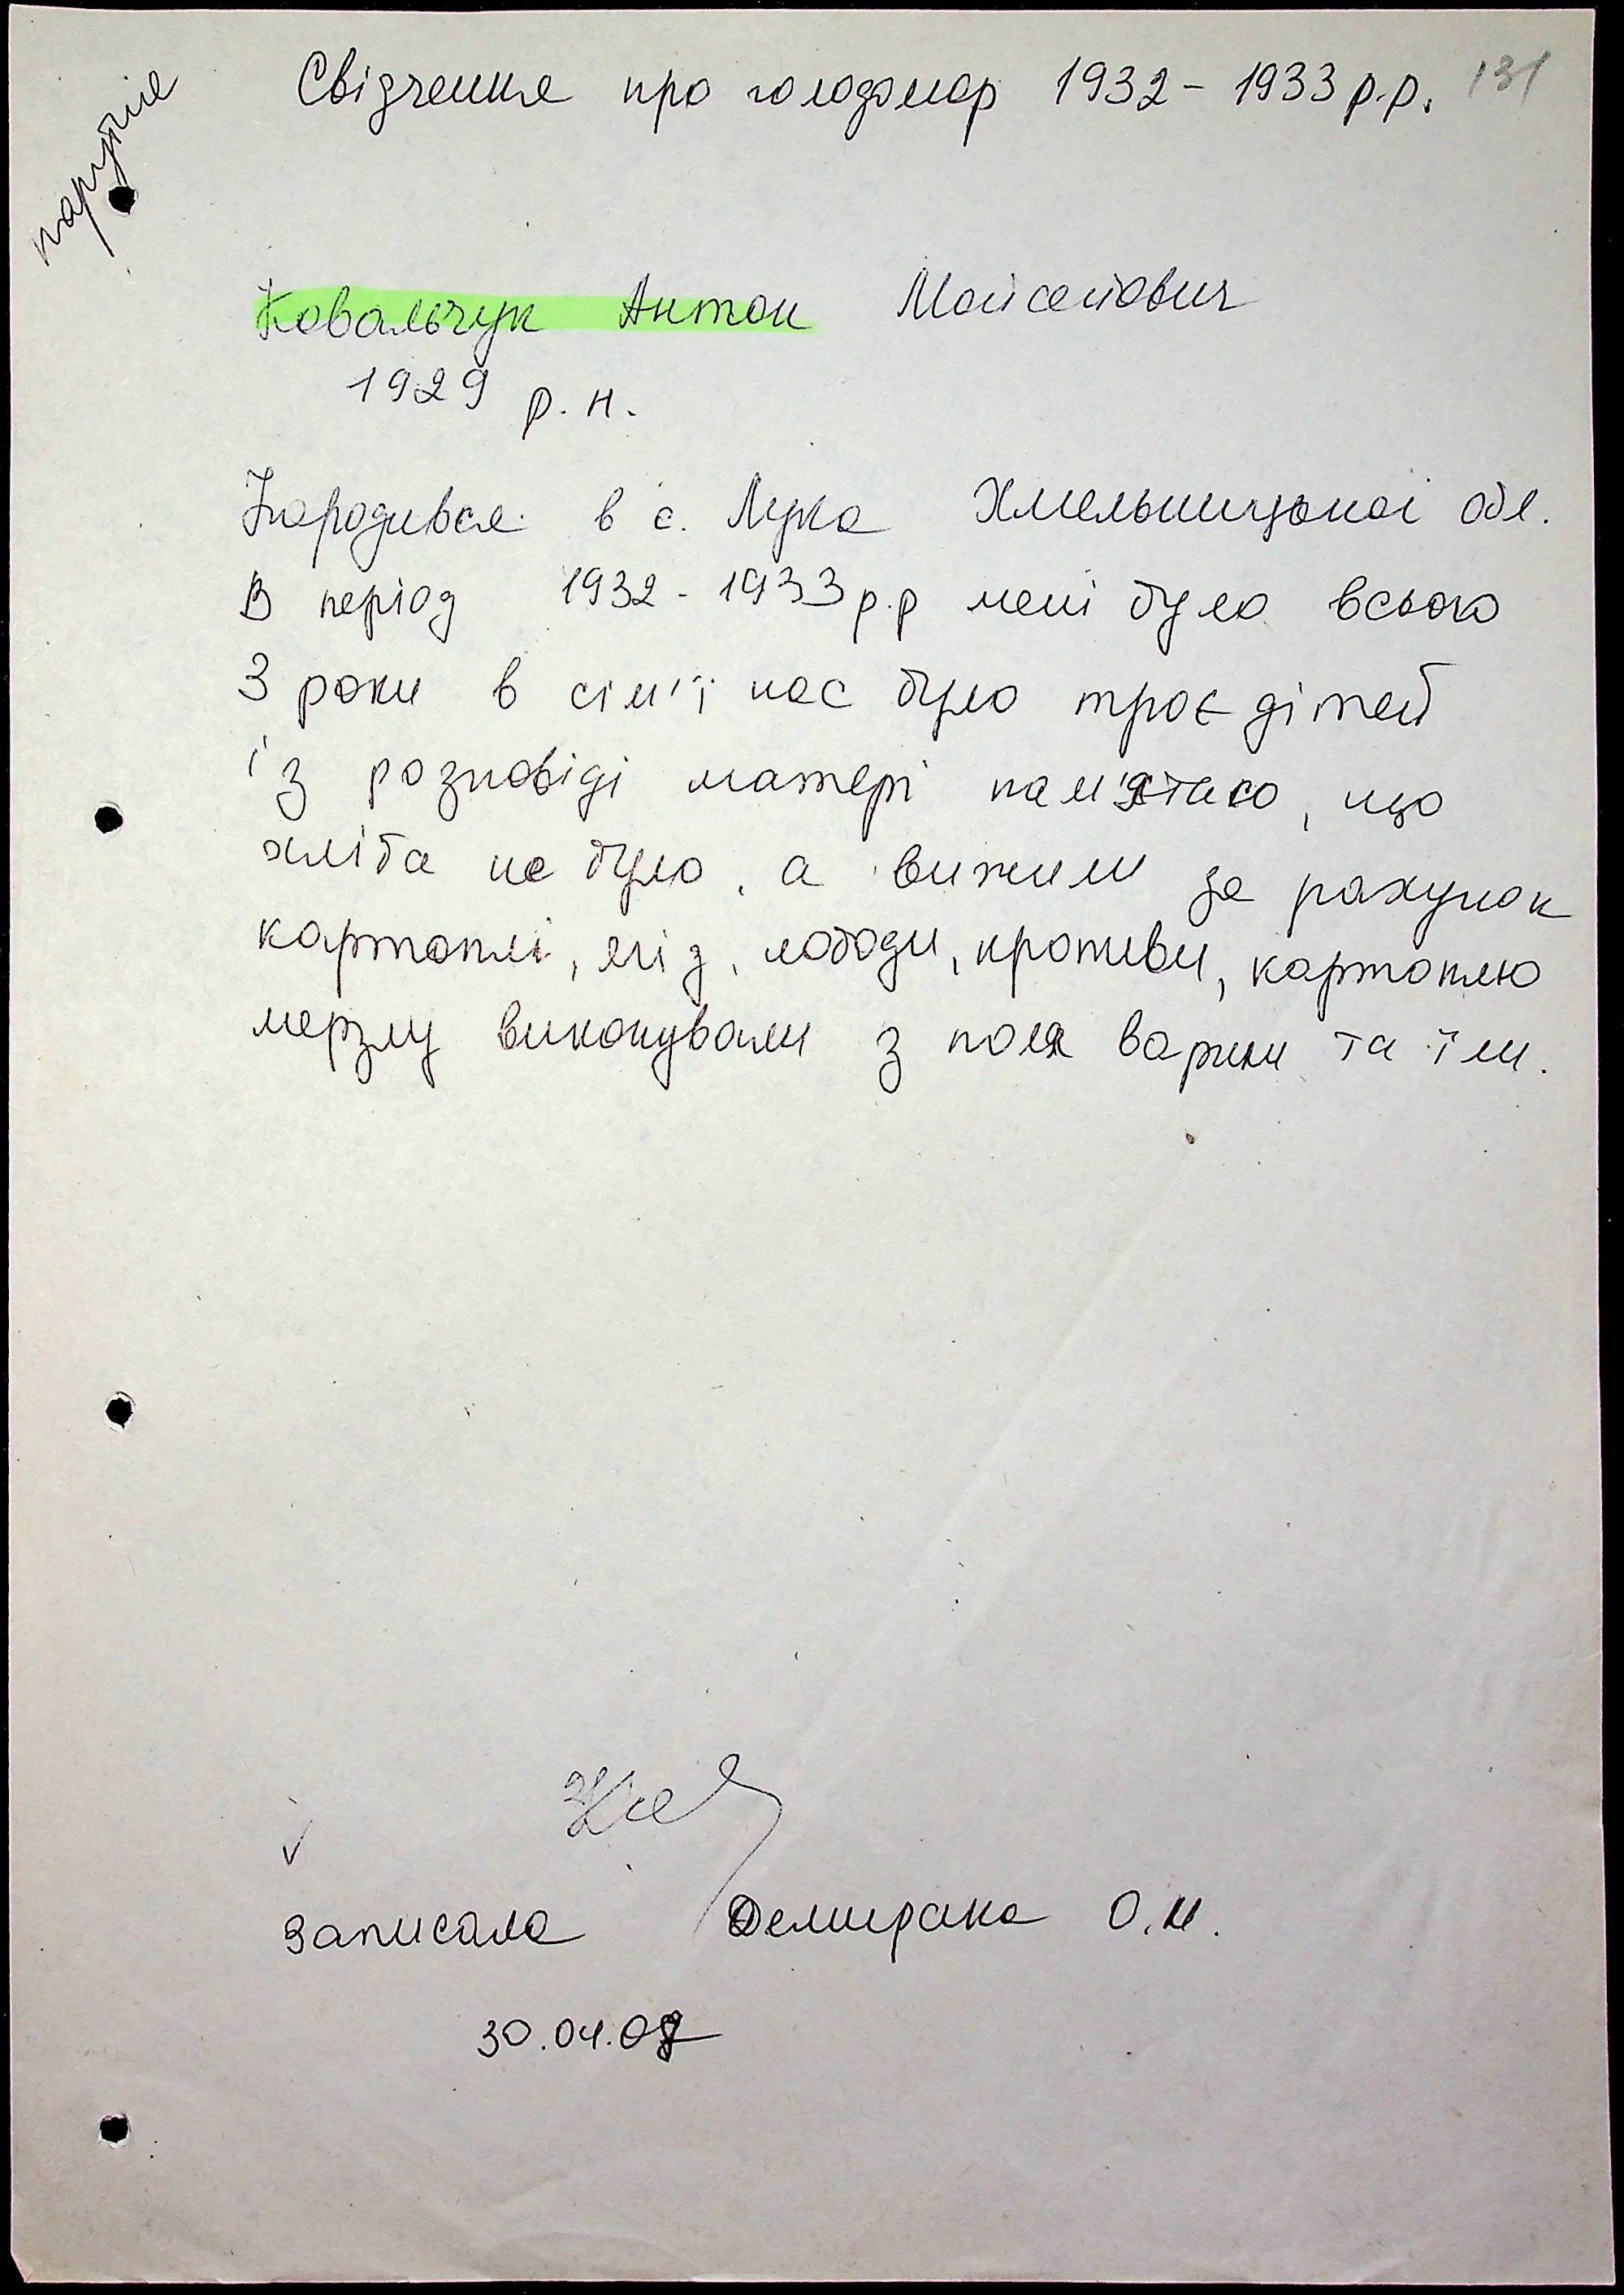 Свідчення про голодомор 1932 - 1933 р.р. 131
Ковальчук Антон Мойсейович
1929 р.н.
Народився в с. Лука Хмельницької обл.
В період 1932 - 1933 р.р мені було всього
3 роки в сім'ї нас було троє дітей
із розповіді матері пам'ятаю, що
хліба не було, а вижили за рахунок
картоплі, ягід, лободи, кропиви, картоплю
мерзлу викопували з поля варили та їли.
Записала О.М.
30.04.08